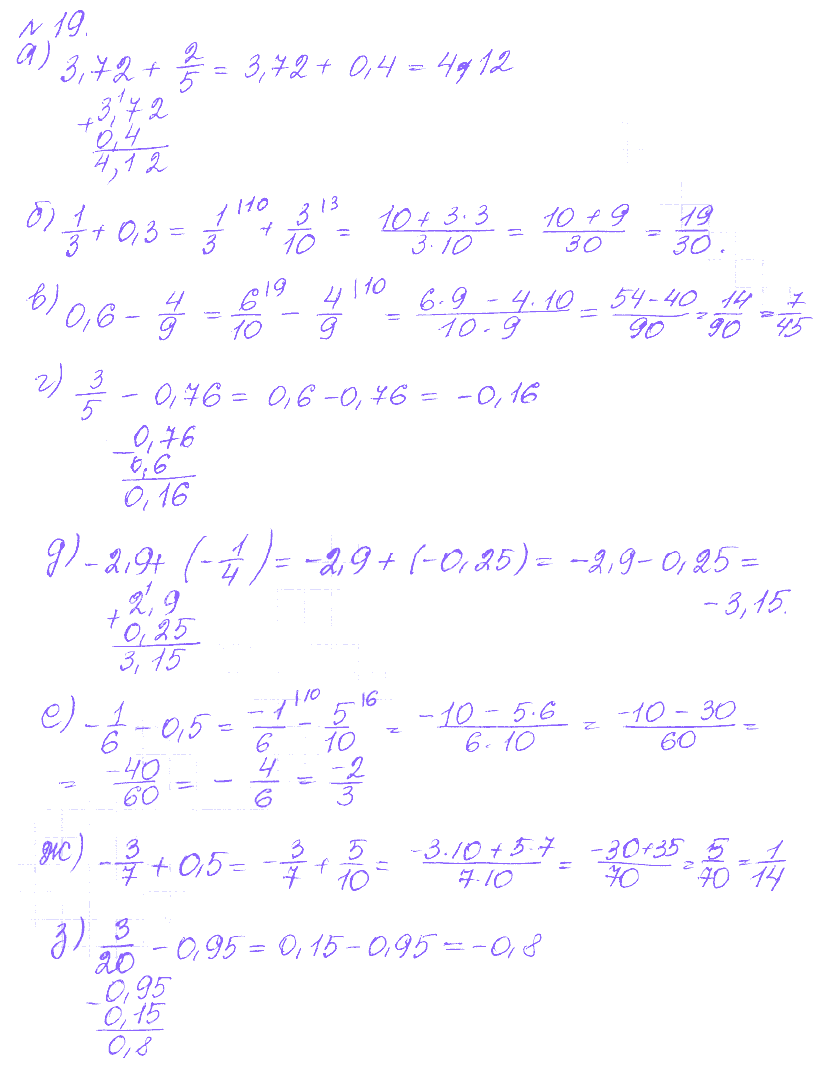 № 19.
а) 3,72 + 2/5 = 3,72 + 0,4 = 4,12
+ 3,72
0,4
4,12
б) 1/3 + 0,3 = 1/3 |10 + 3/10 |3 = (10 + 3·3)/(3·10) = (10 + 9)/30 = 19/30.
в) 0,6 - 4/9 = 6/10 |9 - 4/9 |10 = (6·9 - 4·10)/(10·9) = (54-40)/90 = 14/90 = 7/45
г) 3/5 - 0,76 = 0,6 - 0,76 = -0,16
- 0,76
0,6
0,16
д) -2,9 + (-1/4) = -2,9 + (-0,25) = -2,9 - 0,25 =
-3,15.
+ 2,9
0,25
3,15
е) -1/6 - 0,5 = -1/6 |10 - 5/10 |6 = (-10 - 5·6)/(6·10) = (-10 - 30)/60 =
= -40/60 = - 4/6 = -2/3
ж) -3/7 + 0,5 = -3/7 + 5/10 = (-3·10 + 5·7)/(7·10) = (-30+35)/70 = 5/70 = 1/14
з) 3/20 - 0,95 = 0,15 - 0,95 = -0,8
- 0,95
0,15
0,8